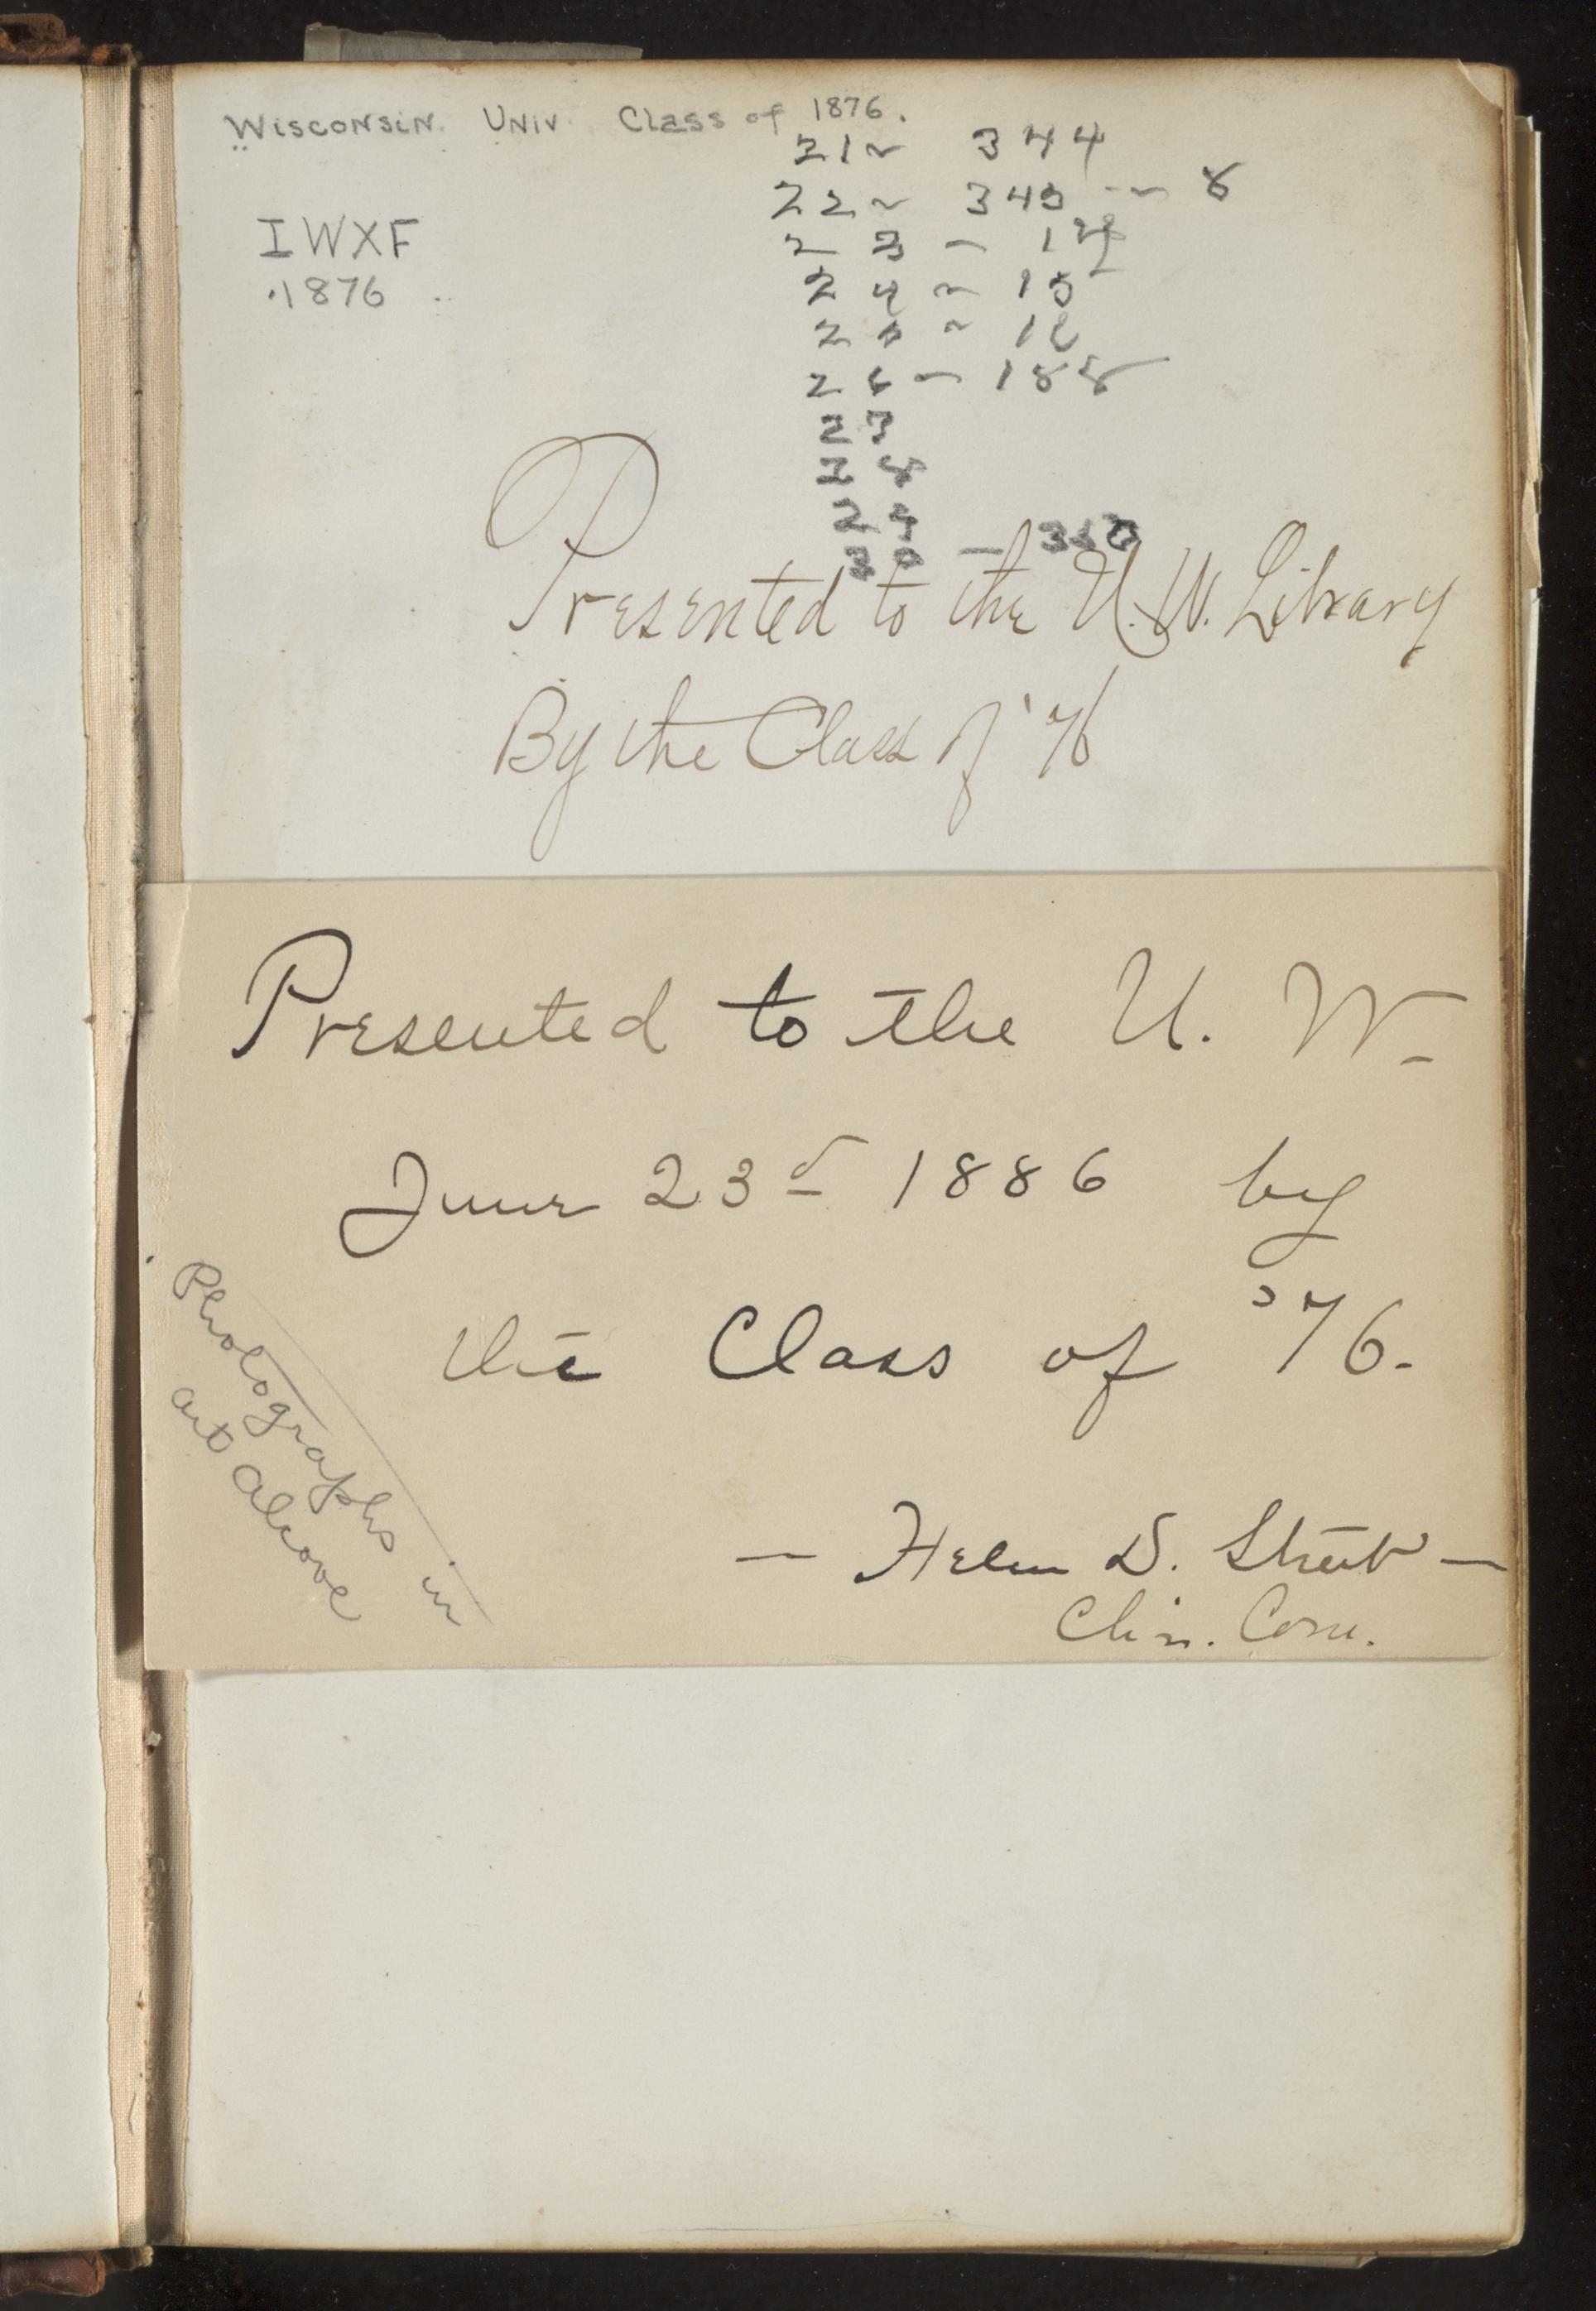 Wisconsin. Univ. Class of 1876.
21 ~ 344
22 ~ 345 -~ 8
IWXF
23 - 14
1876
24 ~ 15
25 ~ 16
26 - 188
27
28
29
30 — 350
Presented to the U.W. Library
By the Class of '76
Presented to the U. W.
June 23d 1886 by
the Class of '76.
Photographs in
art alcove
— Helen D. Street —
Chn. Com.